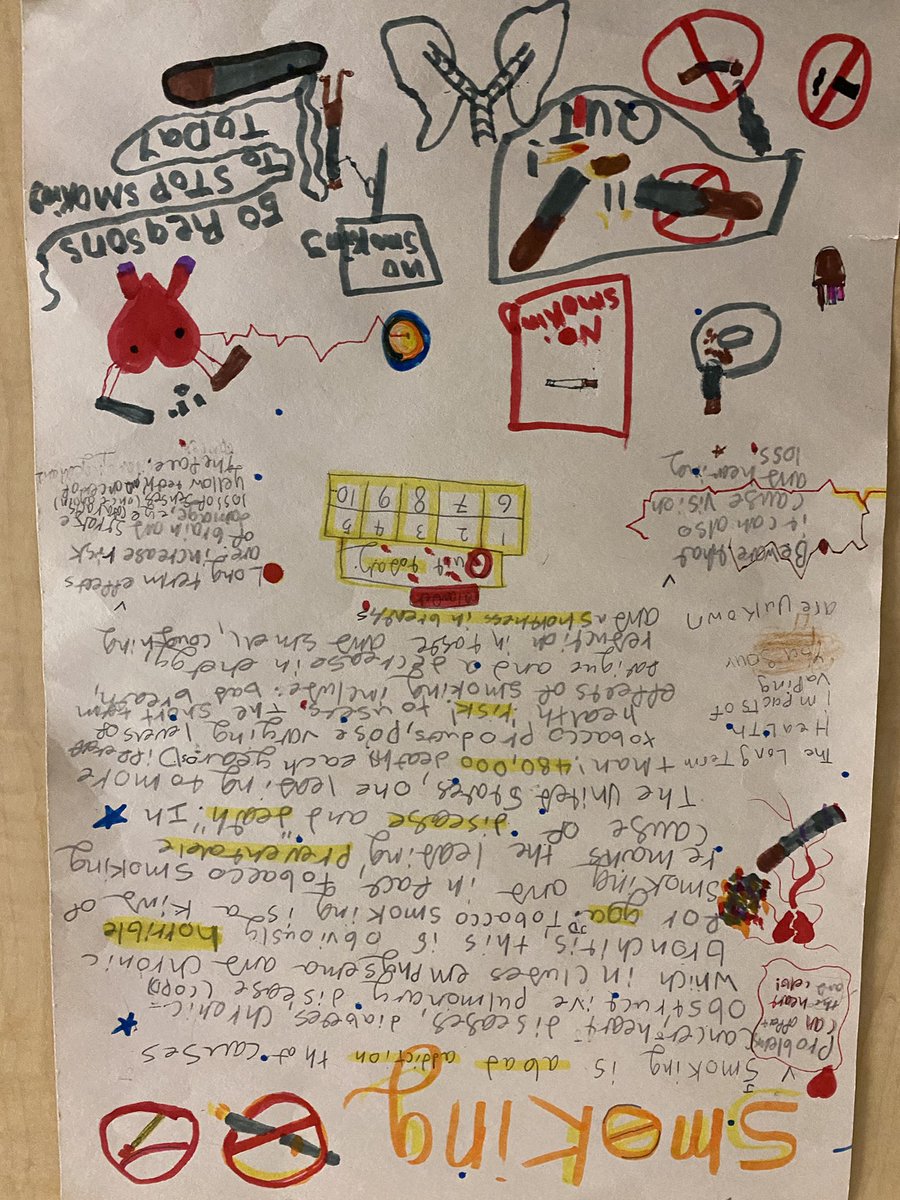 Smoking
Smoking is a bad addiction that causes
cancer, heart diseases, diabetes, chronic
obstructive pulmonary disease (COPD)
which includes emphysema and chronic
bronchitis, this is obviously horrible
for gga. Tobacco smoking is a kind of
smoking and in fact, tobacco smoking
remains the leading "preventable"
cause of disease and "death". In
The United States, one leading to more
than 480,000 death each year. Different
tobacco products, pose varying levels of
health risk! to users. The short term
effects of smoking include: bad breath,
fatigue and a decrease in energy,
reduction in taste and smell, coughing
and shortness in breaths
Problem
can affect
the heart
and cells!
The Long Term
Health
Impacts of
Vaping
are unkown
Beware that
it can also
cause vision
and hearing
loss
Quit today!
1 2 3 4 5
6 7 8 9 10
Long term effects
are: increase risk
of brain and
damage, eye
loss of senses
yellow teeth
the face,
NO!
smoking
no
smoking
50 Reasons
To STOP SMOKING
TODAY
QUIT!